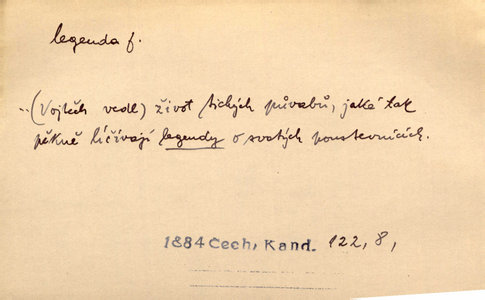 legenda f.
..(Vojtěch vedl) život tichých půvabů, jaké tak
pěkně líčívají legendy o svatých poustevnících.
1884 Čech, Kand. 122, 8,